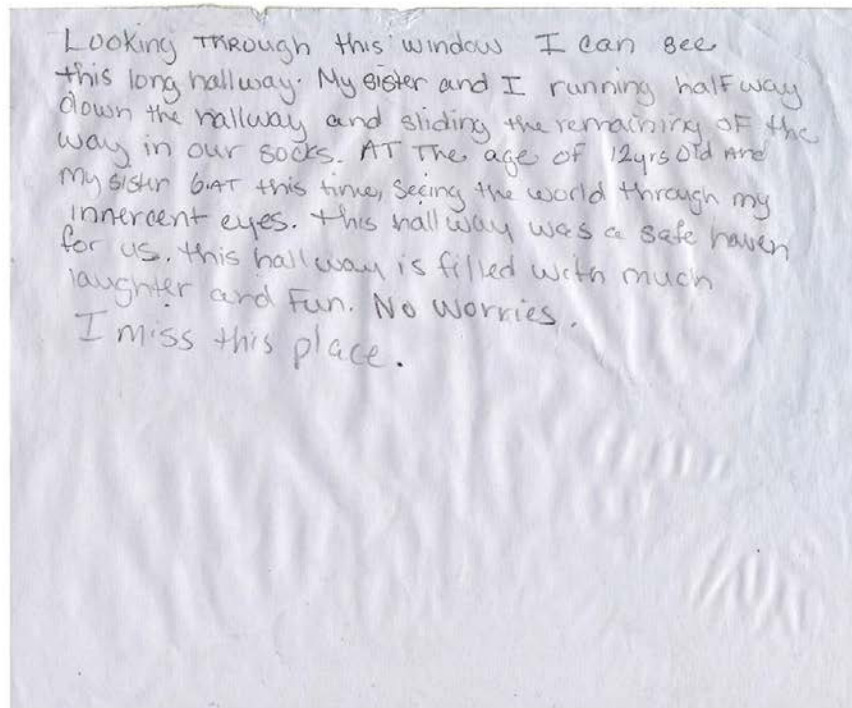 Looking THROUGH this window I can see
this long hallway. My sister and I running halfway
down the hallway and sliding the remaining of the
way in our socks. AT The age of 12yrs Old And
my sister 6.AT this time, Seeing the world through my
innercent eyes. this hallway was a safe haven
for us. this hallway is filled with much
laughter and Fun. No Worries.
I miss this place.